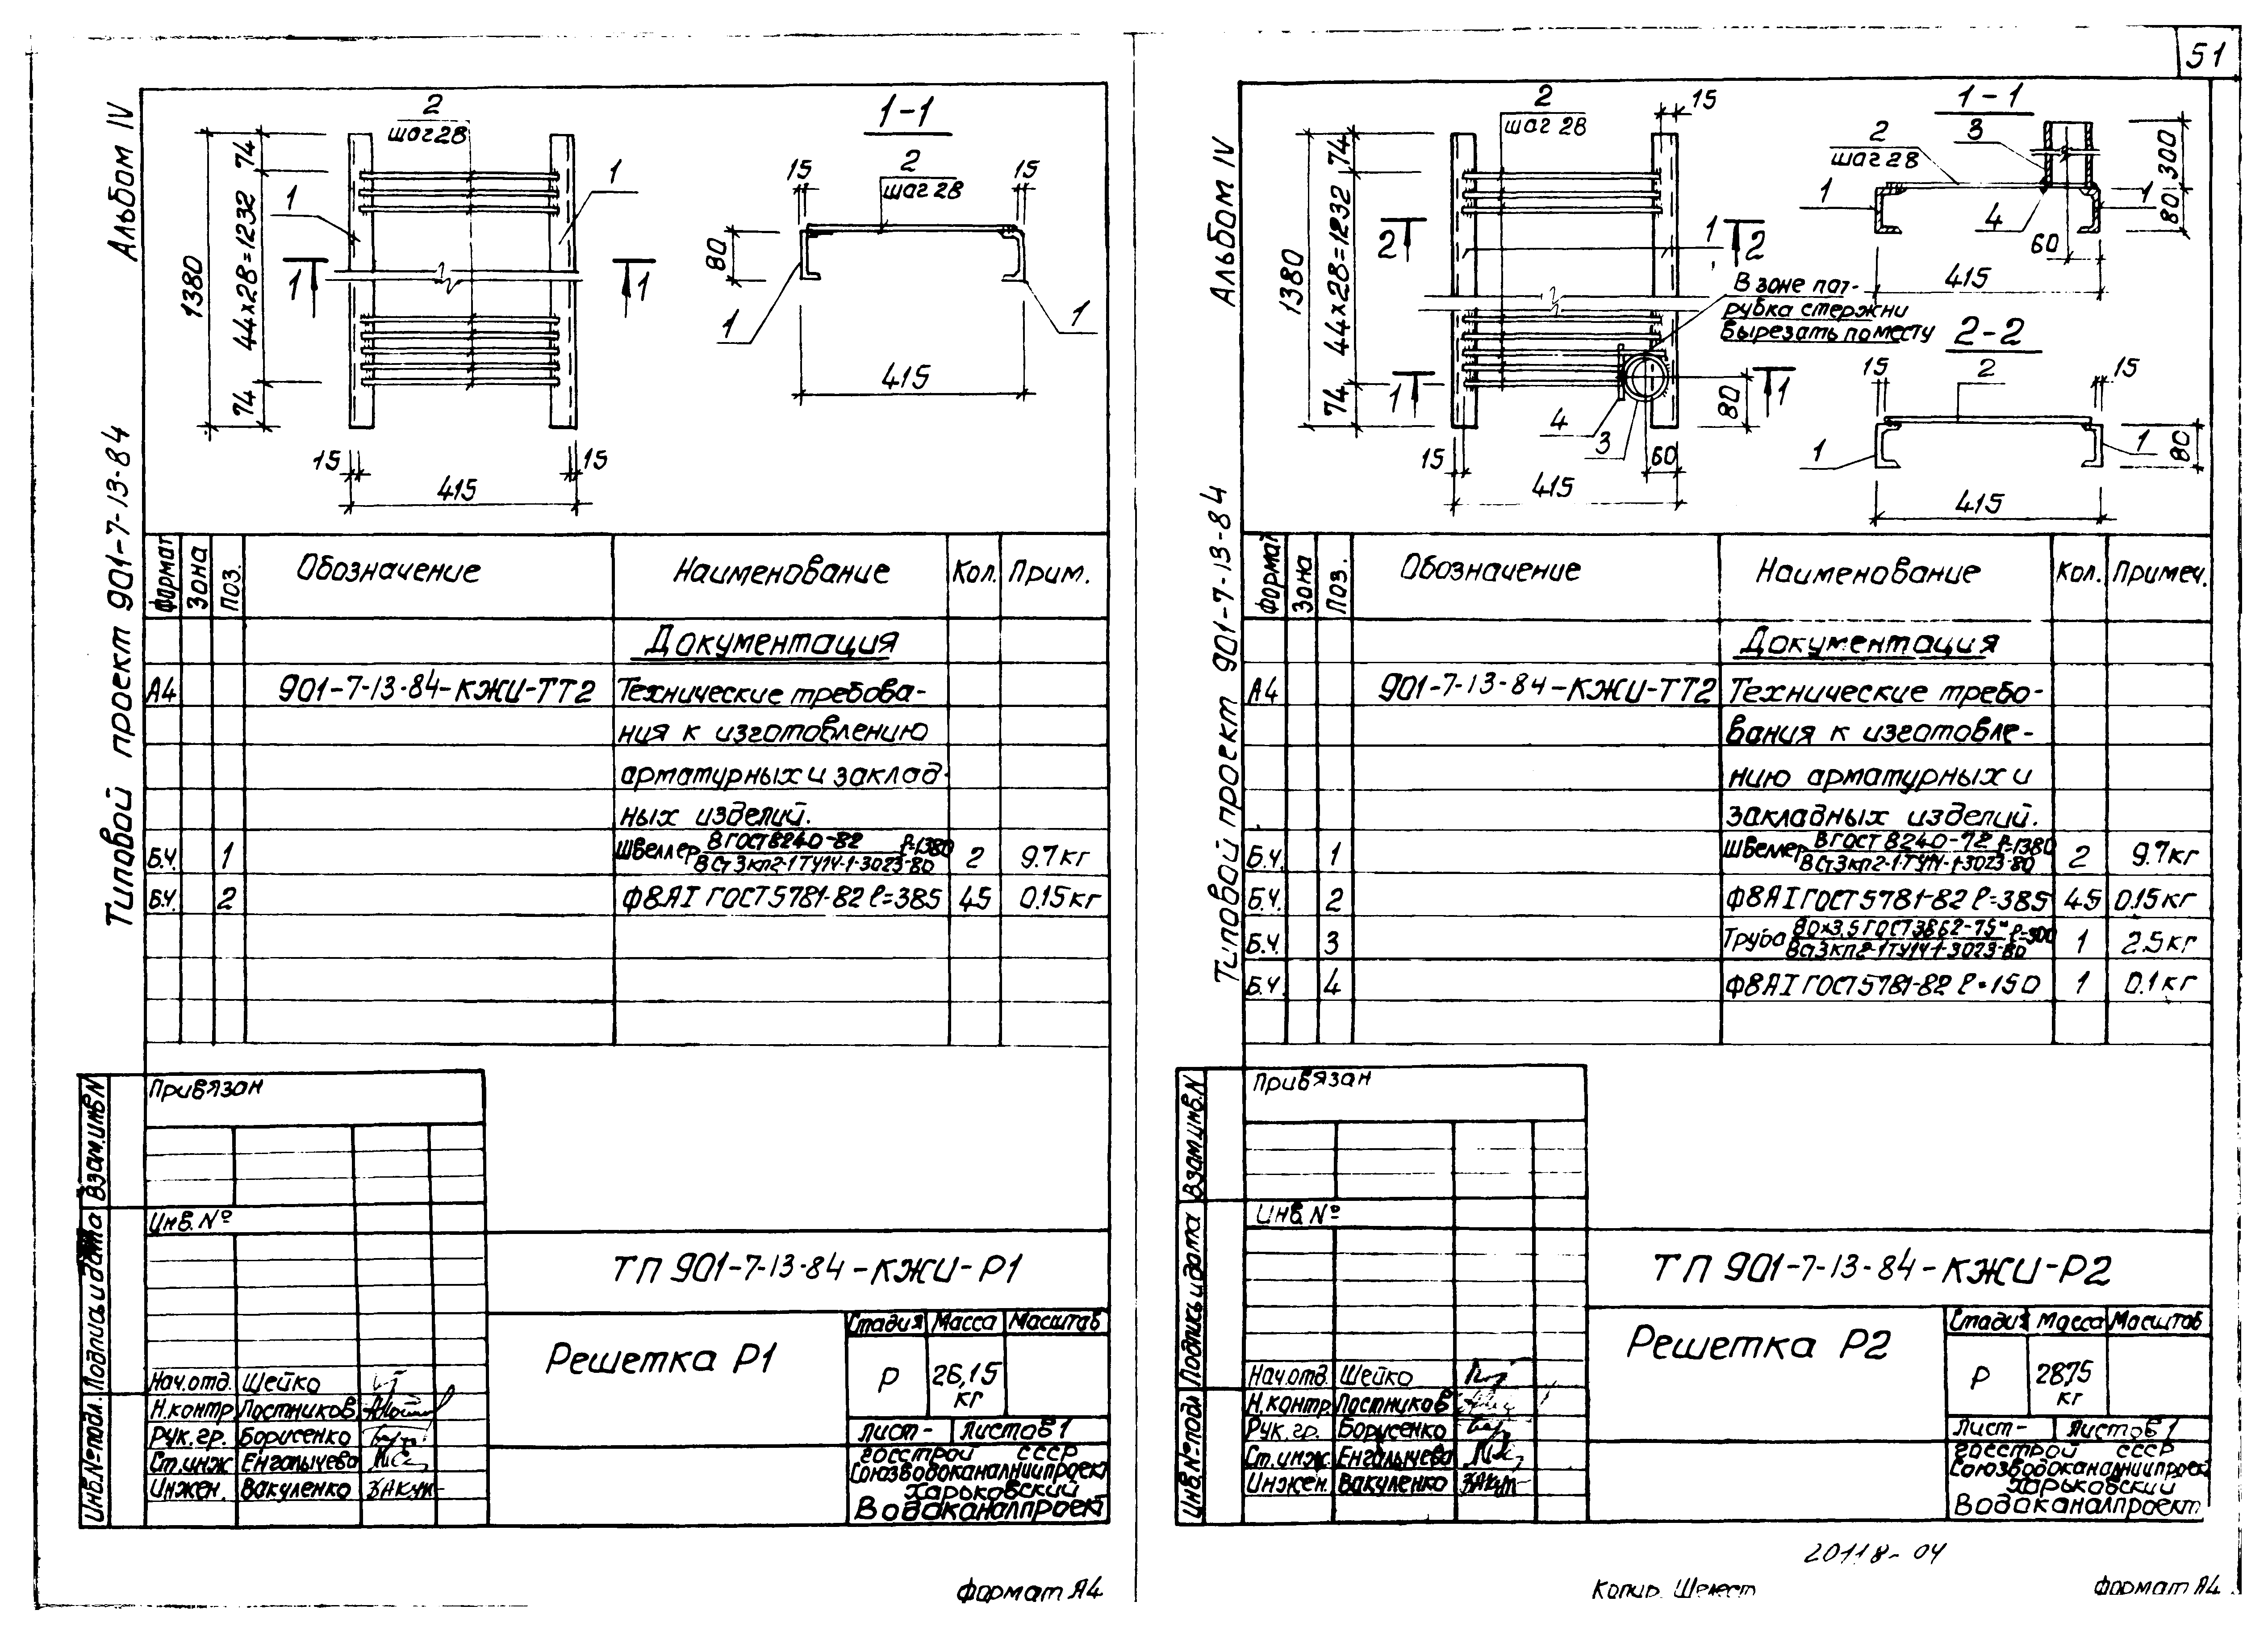 51
Альбом IV
Типовой проект 901-7-13-84
2
шаг 28
1-1
74
44х28=1232
1380
74
1
1
1
1
15
15
415
15
2
шаг 28
15
80
1
1
415
Формат
Зона
Поз.
Обозначение
Наименование
Кол.
Прим.
Документация
А4
901-7-13-84-КЖИ-ТТ2
Технические требова-
ния к изготовлению
арматурных и заклад-
ных изделий.
Б.Ч. 1 Швеллер 8 ГОСТ 8240-82 ℓ=1380 2 9.7 кг
ВСт3кп2-1ТУ14-1-3023-80
Б.Ч. 2 Ф8АI ГОСТ 5781-82 ℓ=385 45 0.15 кг
Привязан
Инв. №
Взам.инв.N
Подпись и дата
Инв.№ подл.
ТП 901-7-13-84-КЖИ-Р1
Решетка Р1
Стадия Масса Масштаб
Р 26,15
кг
Лист- Листов 1
Нач.отд. Шейко
Н.контр Постников
Рук.гр. Борисенко
Ст.инж Енгалычева
Инжен. Вакуленко
Госстрой СССР
Союзводоканалниипроект
Харьковский
Водоканалпроект
Формат А4
Альбом IV
Типовой проект 901-7-13-84
2
шаг 28
15
1-1
74
44х28=1232
1380
74
2
2
1
1
1
В зоне пат-
рубка стержни
вырезать по месту
4
3
80
15
60
415
2
шаг 28
3
300
80
1
1
4
60
415
2-2
15
2
15
1
1
80
415
Формат
Зона
Поз.
Обозначение
Наименование
Кол.
Примеч.
Документация
А4
901-7-13-84-КЖИ-ТТ2
Технические требо-
вания к изготовле-
нию арматурных и
закладных изделий.
Б.Ч. 1 Швеллер 8 ГОСТ 8240-72 ℓ=1380 2 9.7 кг
ВСт3кп2-1ТУ14-1-3023-80
Б.Ч. 2 Ф8АI ГОСТ 5781-82 ℓ=385 45 0.15 кг
Б.Ч. 3 Труба 80х3.5 ГОСТ 3262-75* ℓ=300 1 2.5 кг
ВСт3кп2-1ТУ14-1-3023-80
Б.Ч. 4 Ф8АI ГОСТ 5781-82 ℓ=150 1 0.1 кг
Привязан
Инв. №
Взам.инв.N
Подпись и дата
Инв.№ подл
ТП 901-7-13-84-КЖИ-Р2
Решетка Р2
Стадия Масса Масштаб
Р 28,75
кг
Лист- Листов 1
Нач.отд. Шейко
Н.контр. Постников
Рук.гр. Борисенко
Ст.инж. Енгалычева
Инжен. Вакуленко
Госстрой СССР
Союзводоканалниипроект
Харьковский
Водоканалпроект
20118-04
Копир. Шелест
Формат А4